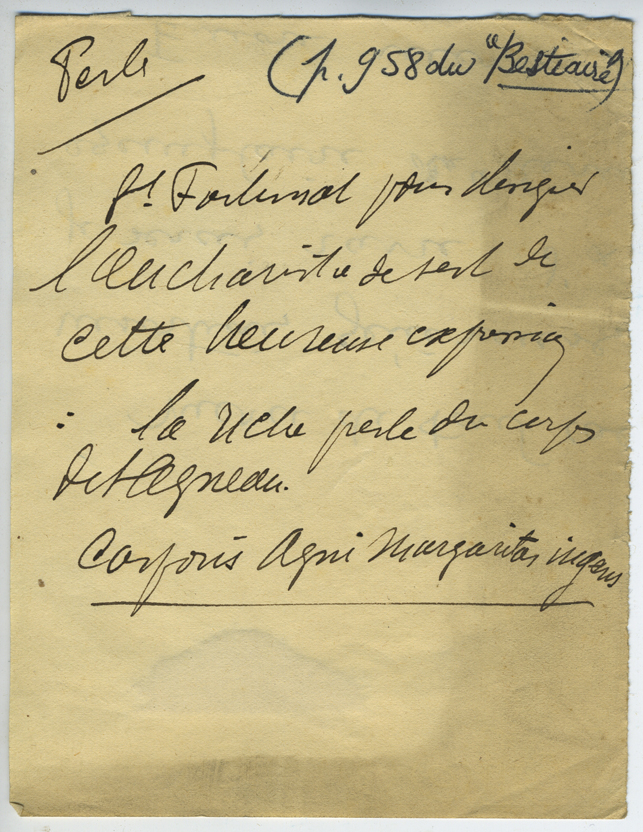 Perle
(p. 958 du "Bestiaire")
St Fortunat pour designer
l'Eucharistie se sert de
cette heureuse expression
: la riche perle du corps
de l'Agneau.
Corporis Agni Margaritas ingens